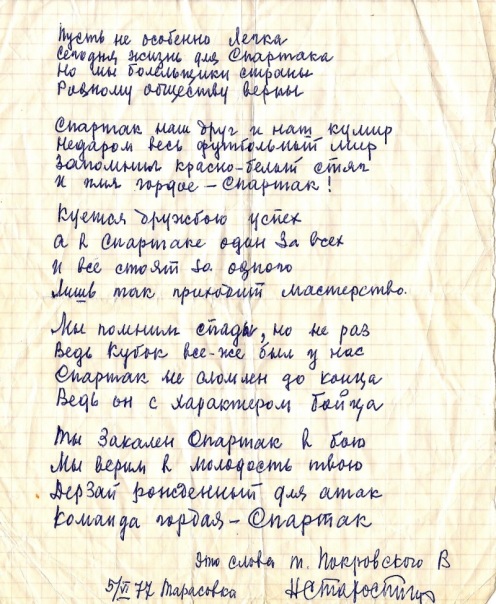 Пусть не особенно легка
Сегодня жизнь для Спартака
Но мы болельщики страны
Родному обществу верны
Спартак наш друг и наш кумир
Недаром весь футбольный мир
Запомнил красно-белый стяг
И имя гордое – Спартак!
Куется дружбою успех
А в Спартаке один за всех
И все стоят за одного
Лишь так приходит мастерство.
Мы помним спады, но не раз
Ведь Кубок все-же был у нас
Спартак не сломлен до конца
Ведь он с характером бойца
Ты закален Спартак в бою
Мы верим в молодость твою
Дерзай рожденный для атак
Команда гордая – Спартак
Это слова т. Покровского В
5/VI 77 Тарасовка НСтаростин